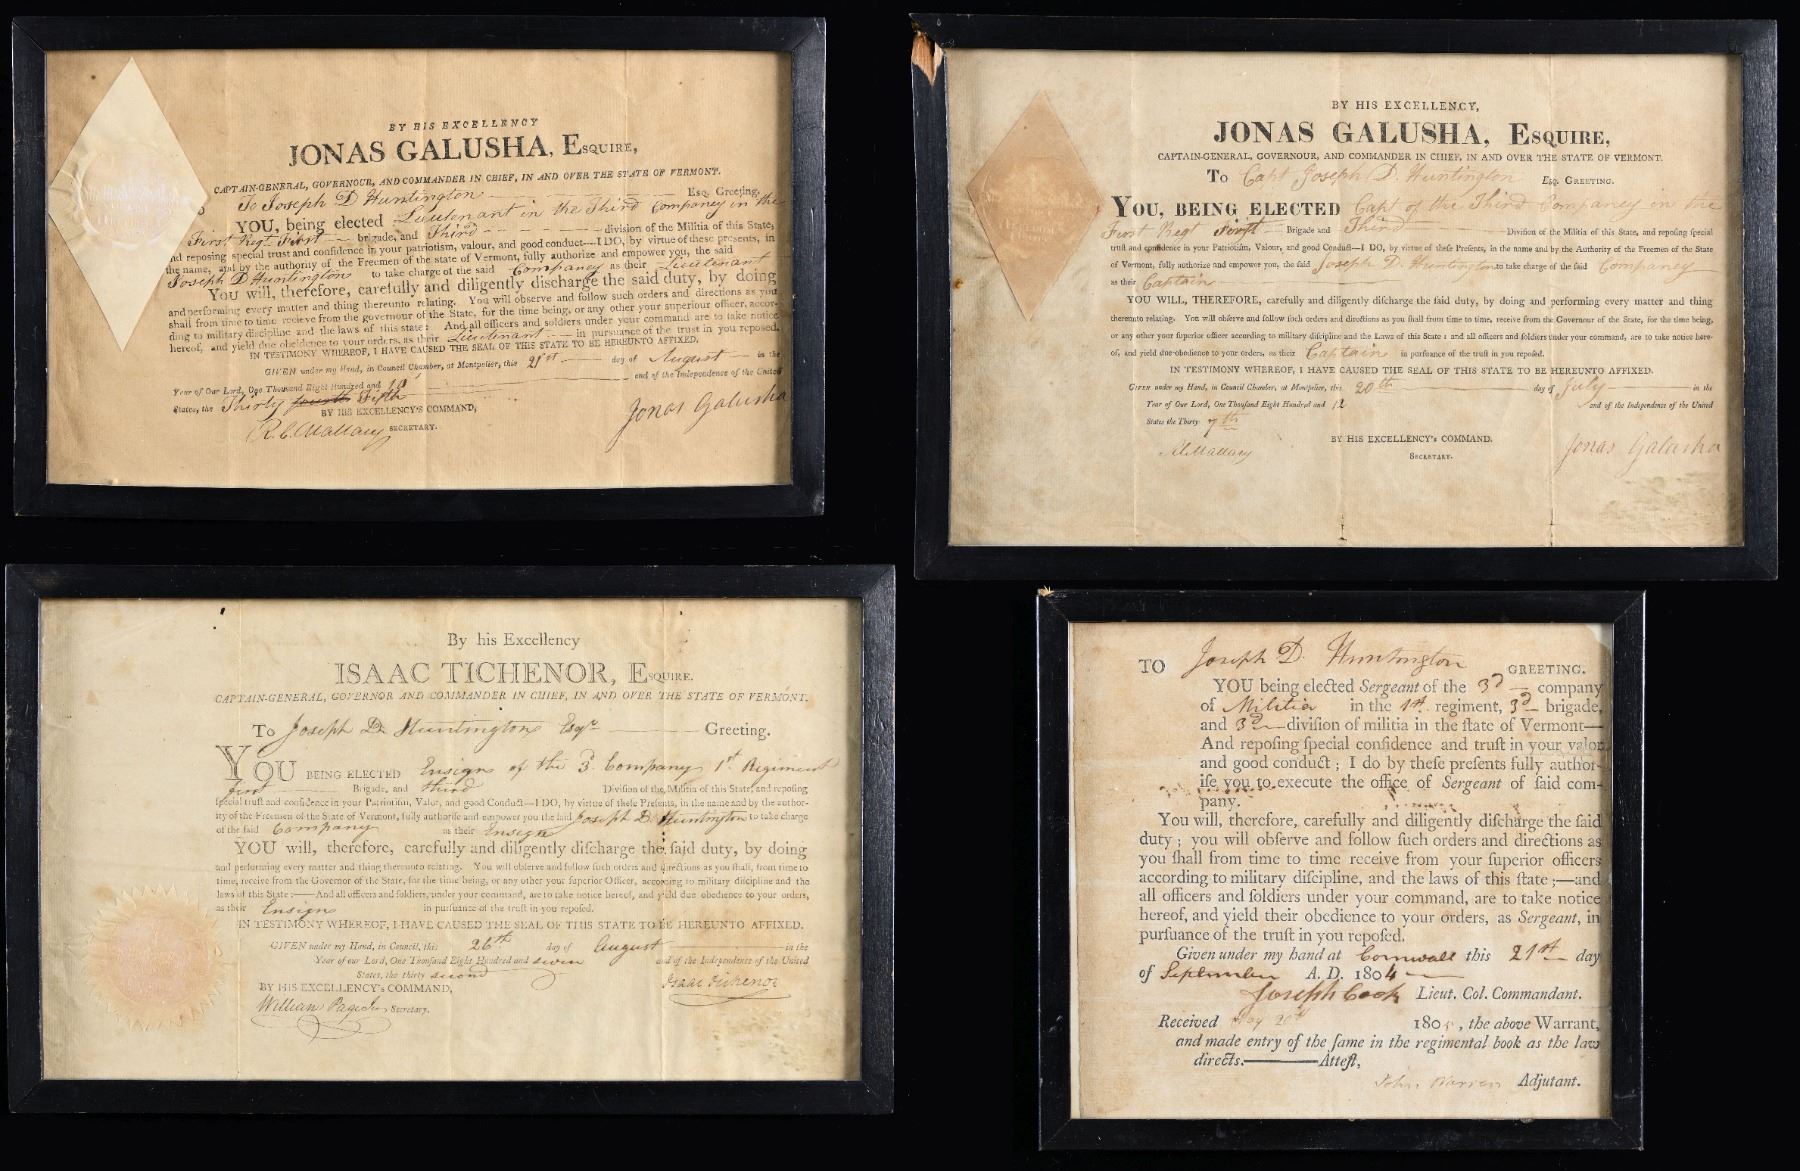 BY HIS EXCELLENCY
JONAS GALUSHA, ESQUIRE,
CAPTAIN-GENERAL, GOVERNOUR, AND COMMANDER IN CHIEF, IN AND OVER THE STATE OF VERMONT.
To Joseph D Huntington Esq. Greeting,
YOU, being elected Lieutenant in the Third Company in the
First Regt First brigade, and Third division of the Militia of this State;
and reposing special trust and confidence in your patriotism, valour, and good conduct—I DO, by virtue of these presents, in
the name, and by the authority of the Freemen of the state of Vermont, fully authorize and empower you, the said
Joseph D Huntington to take charge of the said Company as their Lieutenant
YOU will, therefore, carefully and diligently discharge the said duty, by doing
and performing every matter and thing thereunto relating. You will observe and follow such orders and directions as you
shall from time to time recieve from the governour of the State, for the time being, or any other your superior officer, accor-
ding to military discipline and the laws of this state: And all officers and soldiers under your command are to take notice
hereof, and yield due obeidence to your orders, as their Lieutenant in pursuance of the trust in you reposed.
IN TESTIMONY WHEREOF, I HAVE CAUSED THE SEAL OF THIS STATE TO BE HEREUNTO AFFIXED.
GIVEN under my Hand, in Council Chamber, at Montpelier, this 21st day of August in the
Year of Our Lord, One Thousand Eight Hundred and 10 and of the Independence of the United
States, the Thirty fourth Fifth
BY HIS EXCELLENCY'S COMMAND,
Jonas Galusha
R. C. Mallary SECRETARY.
BY HIS EXCELLENCY,
JONAS GALUSHA, ESQUIRE,
CAPTAIN-GENERAL, GOVERNOUR, AND COMMANDER IN CHIEF, IN AND OVER THE STATE OF VERMONT.
To Capt Joseph D. Huntington Esq. Greeting.
YOU, BEING ELECTED Capt of the Third Company in the
First Regt First Brigade and Third Division of the Militia of this State, and reposing special
trust and confidence in your Patriotism, Valour, and good Conduct—I DO, by virtue of these Presents, in the name and by the Authority of the Freemen of the State
of Vermont, fully authorize and empower you, the said Joseph D. Huntington to take charge of the said Company
as their Captain
YOU WILL, THEREFORE, carefully and diligently diſcharge the ſaid duty, by doing and performing every matter and thing
thereunto relating. You will obſerve and follow ſuch orders and directions as you ſhall from time to time, receive from the Governour of the State, for the time being,
or any other your ſuperior officer according to military diſcipline and the Laws of this State: and all officers and ſoldiers under your command, are to take notice here-
of, and yield due obedience to your orders, as their Captain in purſuance of the truſt in you repoſed.
IN TESTIMONY WHEREOF, I HAVE CAUSED THE SEAL OF THIS STATE TO BE HEREUNTO AFFIXED.
Given under my Hand, in Council Chamber, at Montpelier, this 20th day of July in the
Year of Our Lord, One Thouſand Eight Hundred and 12 and of the Independence of the United
States the Thirty 7th
BY HIS EXCELLENCY's COMMAND.
Jonas Galusha
Secretary.
By his Excellency
ISAAC TICHENOR, ESQUIRE.
CAPTAIN-GENERAL, GOVERNOR AND COMMANDER IN CHIEF, IN AND OVER THE STATE OF VERMONT.
To Joseph D. Huntington Esqr Greeting.
YOU BEING ELECTED Ensign of the 3d Company 1st Regiment
first Brigade, and third Division of the Militia of this State, and repoſing
ſpecial truſt and confidence in your Patriotiſm, Valor, and good Conduct—I DO, by virtue of theſe Preſents, in the name and by the author-
ity of the Freemen of the State of Vermont, fully authoriſe and empower you the ſaid Joseph D. Huntington to take charge
of the ſaid Company as their Ensign
YOU will, therefore, carefully and diligently diſcharge the ſaid duty, by doing
and performing every matter and thing thereunto relating. You will obſerve and follow ſuch orders and directions as you ſhall, from time to
time, receive from the Governor of the State, for the time being, or any other your ſuperior Officer, according to military diſcipline and the
laws of this State:—And all officers and ſoldiers, under your command, are to take notice hereof, and yield due obedience to your orders,
as their Ensign in purſuance of the truſt in you repoſed.
IN TESTIMONY WHEREOF, I HAVE CAUSED THE SEAL OF THIS STATE TO BE HEREUNTO AFFIXED.
GIVEN under my Hand, in Council, this 26th day of August in the
Year of our Lord, One Thouſand Eight Hundred and seven and of the Independence of the United
States, the thirty second
BY HIS EXCELLENCY's COMMAND,
Isaac Tichenor
William Page Jr Secretary.
TO Joseph D. Huntington GREETING.
YOU being elected Sergeant of the 3d company
of Militia in the 1st regiment, 3d brigade,
and 3d diviſion of militia in the ſtate of Vermont—
And repoſing ſpecial confidence and truſt in your valor
and good conduct; I do by theſe preſents fully author-
iſe you to execute the office of Sergeant of ſaid com-
pany.
You will, therefore, carefully and diligently diſcharge the ſaid
duty; you will obſerve and follow ſuch orders and directions as
you ſhall from time to time receive from your ſuperior officers
according to military diſcipline, and the laws of this ſtate;—and
all officers and ſoldiers under your command, are to take notice
hereof, and yield their obedience to your orders, as Sergeant, in
purſuance of the truſt in you repoſed.
Given under my hand at Cornwall this 21st day
of September A. D. 1804
Joseph Cook Lieut. Col. Commandant.
Received May 20th 1805, the above Warrant,
and made entry of the ſame in the regimental book as the law
directs.—Atteſt,
John Warren Adjutant.